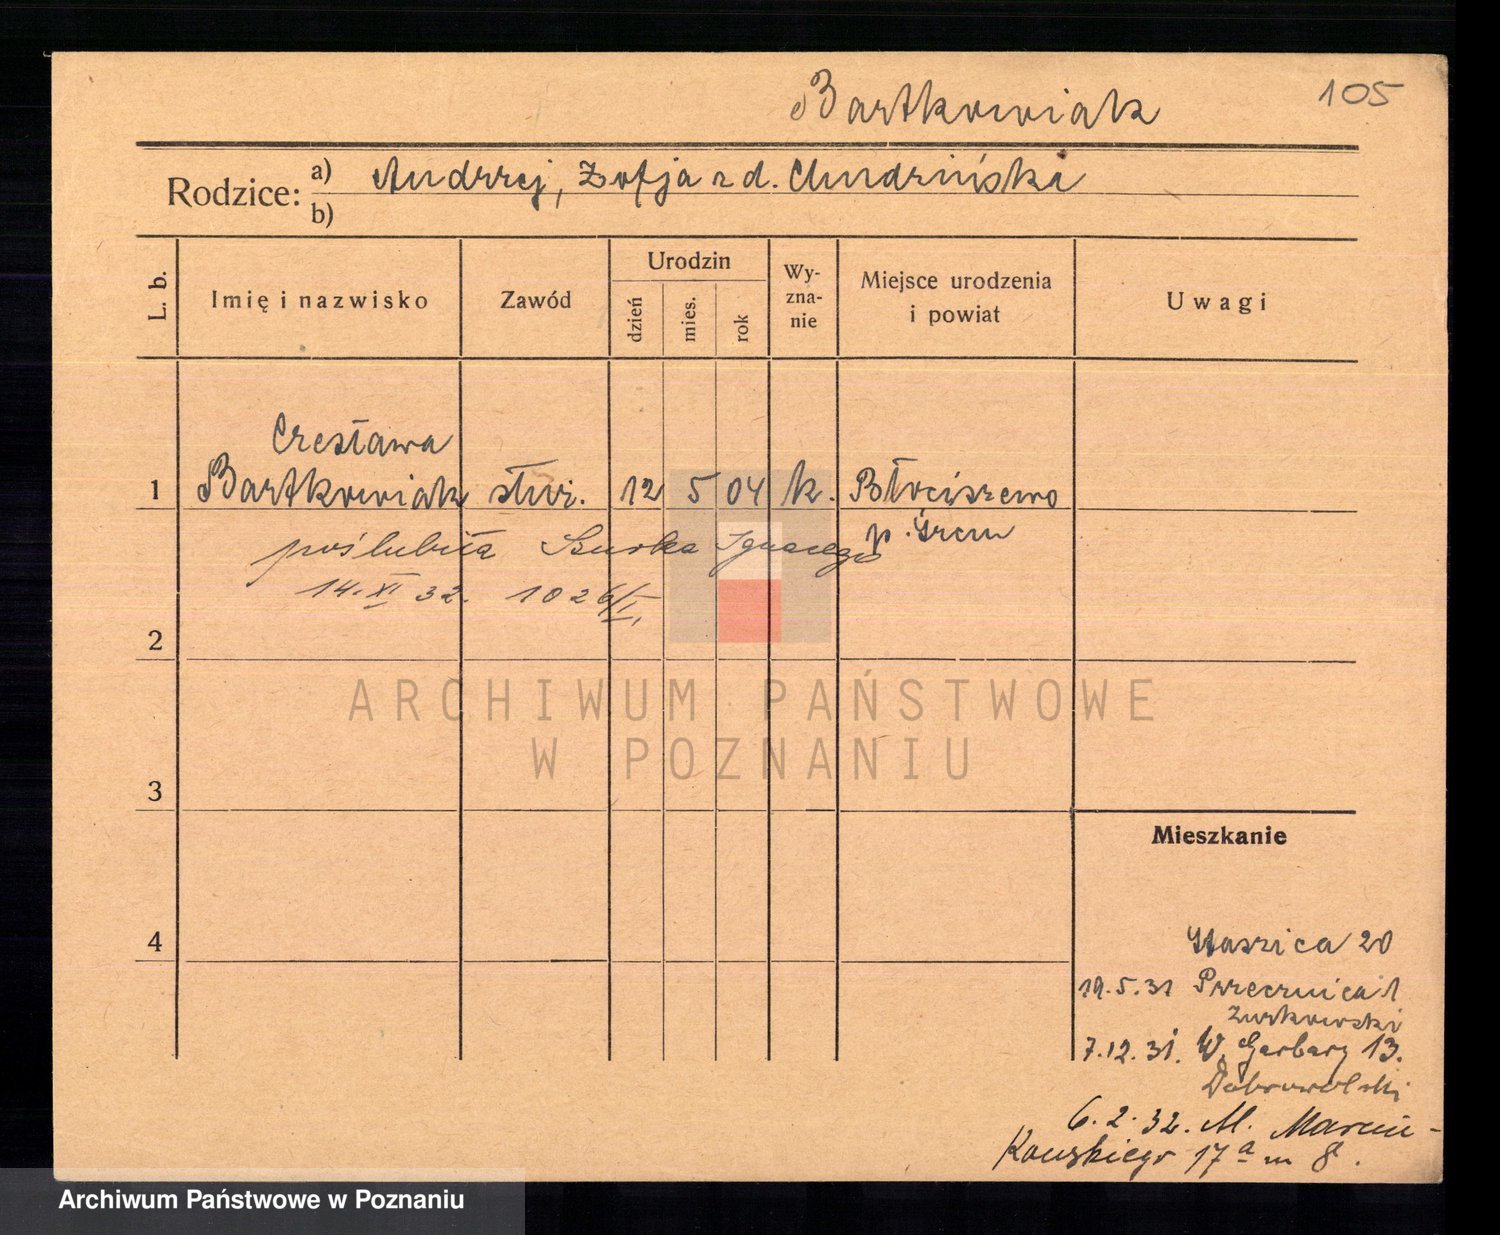 Bartkowiak
105
Rodzice: a) Andrzej, Zofja z d. Chudzińska
b)
L. b.
Imię i nazwisko
Zawód
Urodzin
dzień
mies.
rok
Wy-
zna-
nie
Miejsce urodzenia
i powiat
Uwagi
Czesława
1 Bartkowiak służ. 12 5 04 k. Błociszewo
p. Śrem
poślubiła Ignacego
14. XI 32. 1026/I,
2
ARCHIWUM PAŃSTWOWE
W POZNANIU
3
Mieszkanie
4
Staszica 20
19.5.31 Przecznica 1
Żurkowski
7.12.31. W. Garbary 13.
Dobrowolski
6.2.32. M. Marcin-
kowskiego 17a m 8.
Archiwum Państwowe w Poznaniu